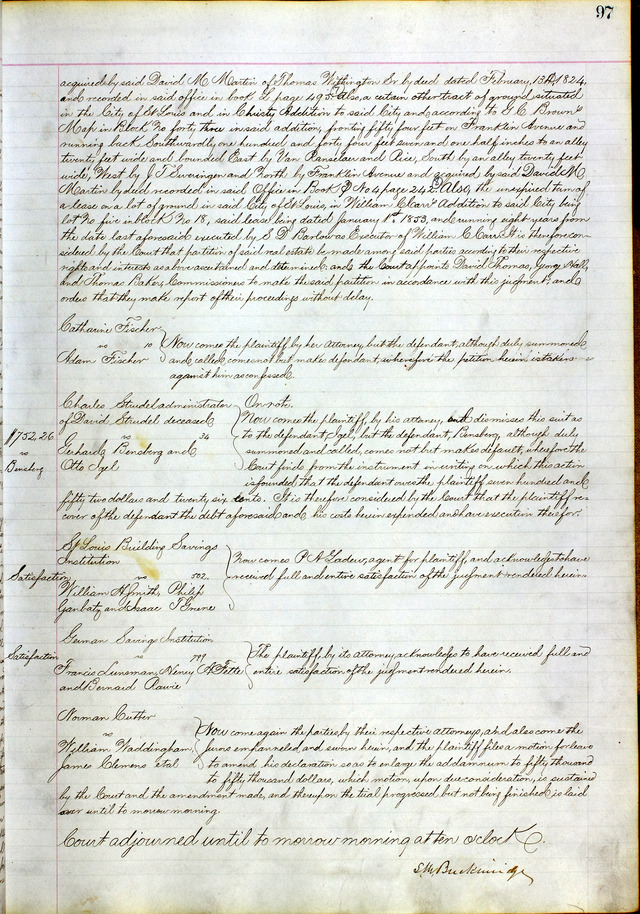 97
acquired by said David M Martin of Thomas Withington Sr by deed dated February, 13th, 1824,
and recorded in said office in book L page 495. Also, a certain other tract of ground situated
in the City of St Louis and in Christy Addition to said City and according to G C Brown's
Map in Block No forty three in said addition, fronting fifty four feet on Franklin Avenue and
running back Southwardly one hundred and forty four feet seven and one half inches to an alley
twenty feet wide and bounded East by Van Ranselaer and Rie, South by an alley twenty feet
wide, West by J T Sweringen and North by Franklin Avenue and acquired by said David M
Martin by deed recorded in said Office in Book No 4 page 242. Also, the unexpired term of
a lease on a lot of ground in said City of St Louis, in William C Carr Addition to said City being
lot No five in block No 18, said lease being dated January 1st 1853, and running eight years from
the date last aforesaid executed by S D Barlow as Executor of William C Carr. It is therefore con-
sidered by the Court that partition of said real estate be made among said parties according to their respective
rights and interests as above ascertained and determined and the Court appoints David Thomas, George Hall,
and Thomas Baker, Commissioners to make the said partition in accordance with this judgment, and
orders that they make report of their proceedings without delay.
Catharine Fischer
vs 10
Adam Fischer
Now comes the plaintiff by her Attorney, but the defendant, although duly summoned
and called comes not but makes defendant, wherefore the petition herein is taken
against him as confessed.
$752.26
vs
Bensberg
Charles Strudel administrator
of David Strudel deceased
vs 34
Gerhard Bensberg and
Otto Igel
On note.
Now comes the plaintiff, by his attorney, and dismisses this suit as
to the defendant, Igel, but the defendant, Bensberg, although duly
summoned and called, comes not but makes default, wherefore the
Court finds from the instrument in writing on which this action
is founded that the defendant owes the plaintiff seven hundred and
fifty two dollars and twenty six cents. It is therefore considered by the Court that the plaintiff re-
cover of the defendant the debt aforesaid and his costs herein expended and have execution therefor.
Satisfaction
St Louis Building Savings
Institution
vs 502.
William H Smith Philip
Garbatz and Isaac T Greene
Now comes P A Ladew, agent for plaintiff, and acknowledges to have
received full and entire satisfaction of the judgment rendered herein.
Satisfaction
German Savings Institution
vs 797
Francis Lunsman, Henry A Fette
and Bernard Rawie
The plaintiff, by its attorney, acknowledges to have received full and
entire satisfaction of the judgment rendered herein.
Norman Cutter
vs
William Waddingham,
James Clemens et al
Now come again the parties by their respective attorneys, and also come the
jurors empanneled and sworn herein, and the plaintiff files a motion for leave
to amend his declaration so as to enlarge the addamnum to fifty thousand
to fifty thousand dollars, which motion, upon due consideration, is sustained
by the Court and the amendment made, and thereupon the trial progressed but not being finished is laid
over until to morrow morning.
Court adjourned until to morrow morning at ten o'clock.
S. M. Breckinridge